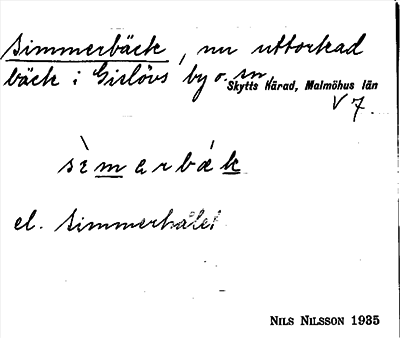 Simmerbäck, nu uttorkad
bäck i Gislövs by o. sn,
Skytts Härad, Malmöhus län
V 7.
sìmerbǽk
el. Simmerhålet
NILS NILSSON 1935